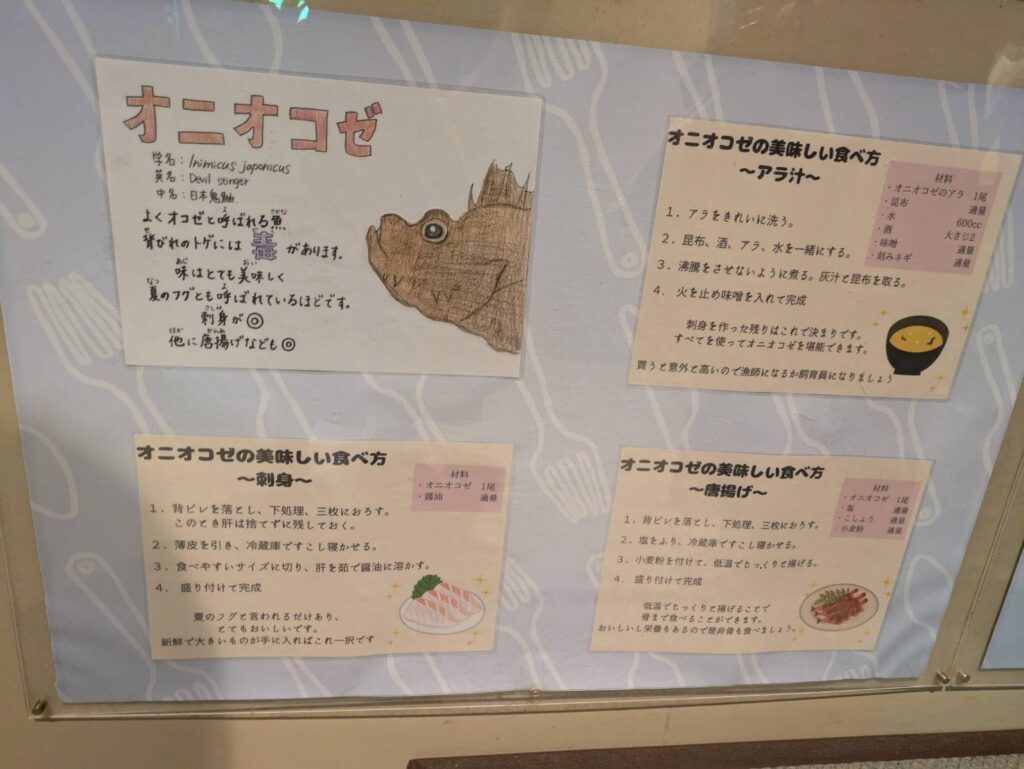 オニオコゼ
学名：Inimicus japonicus
英名：Devil stinger
中名：日本鬼鮋
よくオコゼと呼ばれる魚、
背びれのトゲには毒があります。
味はとても美味しく
夏のフグとも呼ばれているほどです。
刺身が◎
他に唐揚げなども◎
オニオコゼの美味しい食べ方
～アラ汁～
材料
・オニオコゼのアラ 1尾
・昆布 適量
・水 600cc
・酒 大さじ2
・味噌 適量
・刻みネギ 適量
1．アラをきれいに洗う。
2．昆布、酒、アラ、水を一緒にする。
3．沸騰をさせないように煮る。灰汁と昆布を取る。
4．火を止め味噌を入れて完成
刺身を作った残りはこれで決まりです。
すべてを使ってオニオコゼを堪能できます。
買うと意外と高いので漁師になるか飼育員になりましょう
オニオコゼの美味しい食べ方
～刺身～
材料
・オニオコゼ 1尾
・醤油 適量
1．背ビレを落とし、下処理、三枚におろす。
このとき肝は捨てずに残しておく。
2．薄皮を引き、冷蔵庫ですこし寝かせる。
3．食べやすいサイズに切り、肝を茹で醤油に溶かす。
4．盛り付けて完成
夏のフグと言われるだけあり、
とてもおいしいです。
新鮮で大きいものが手に入ればこれ一択です
オニオコゼの美味しい食べ方
～唐揚げ～
材料
・オニオコゼ 1尾
・塩 適量
・こしょう 適量
・小麦粉 適量
1．背ビレを落とし、下処理、三枚におろす。
2．塩をふり、冷蔵庫ですこし寝かせる。
3．小麦粉を付けて、低温でじっくりと揚げる。
4．盛り付けて完成
低温でじっくりと揚げることで
骨まで食べることができます。
おいしいし栄養もあるので是非骨も食べましょう。